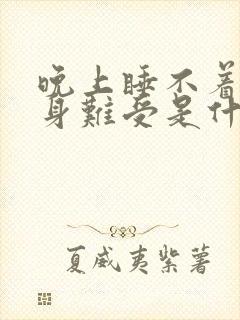 晚上睡不着
身难受是什
夏威夷紫薯